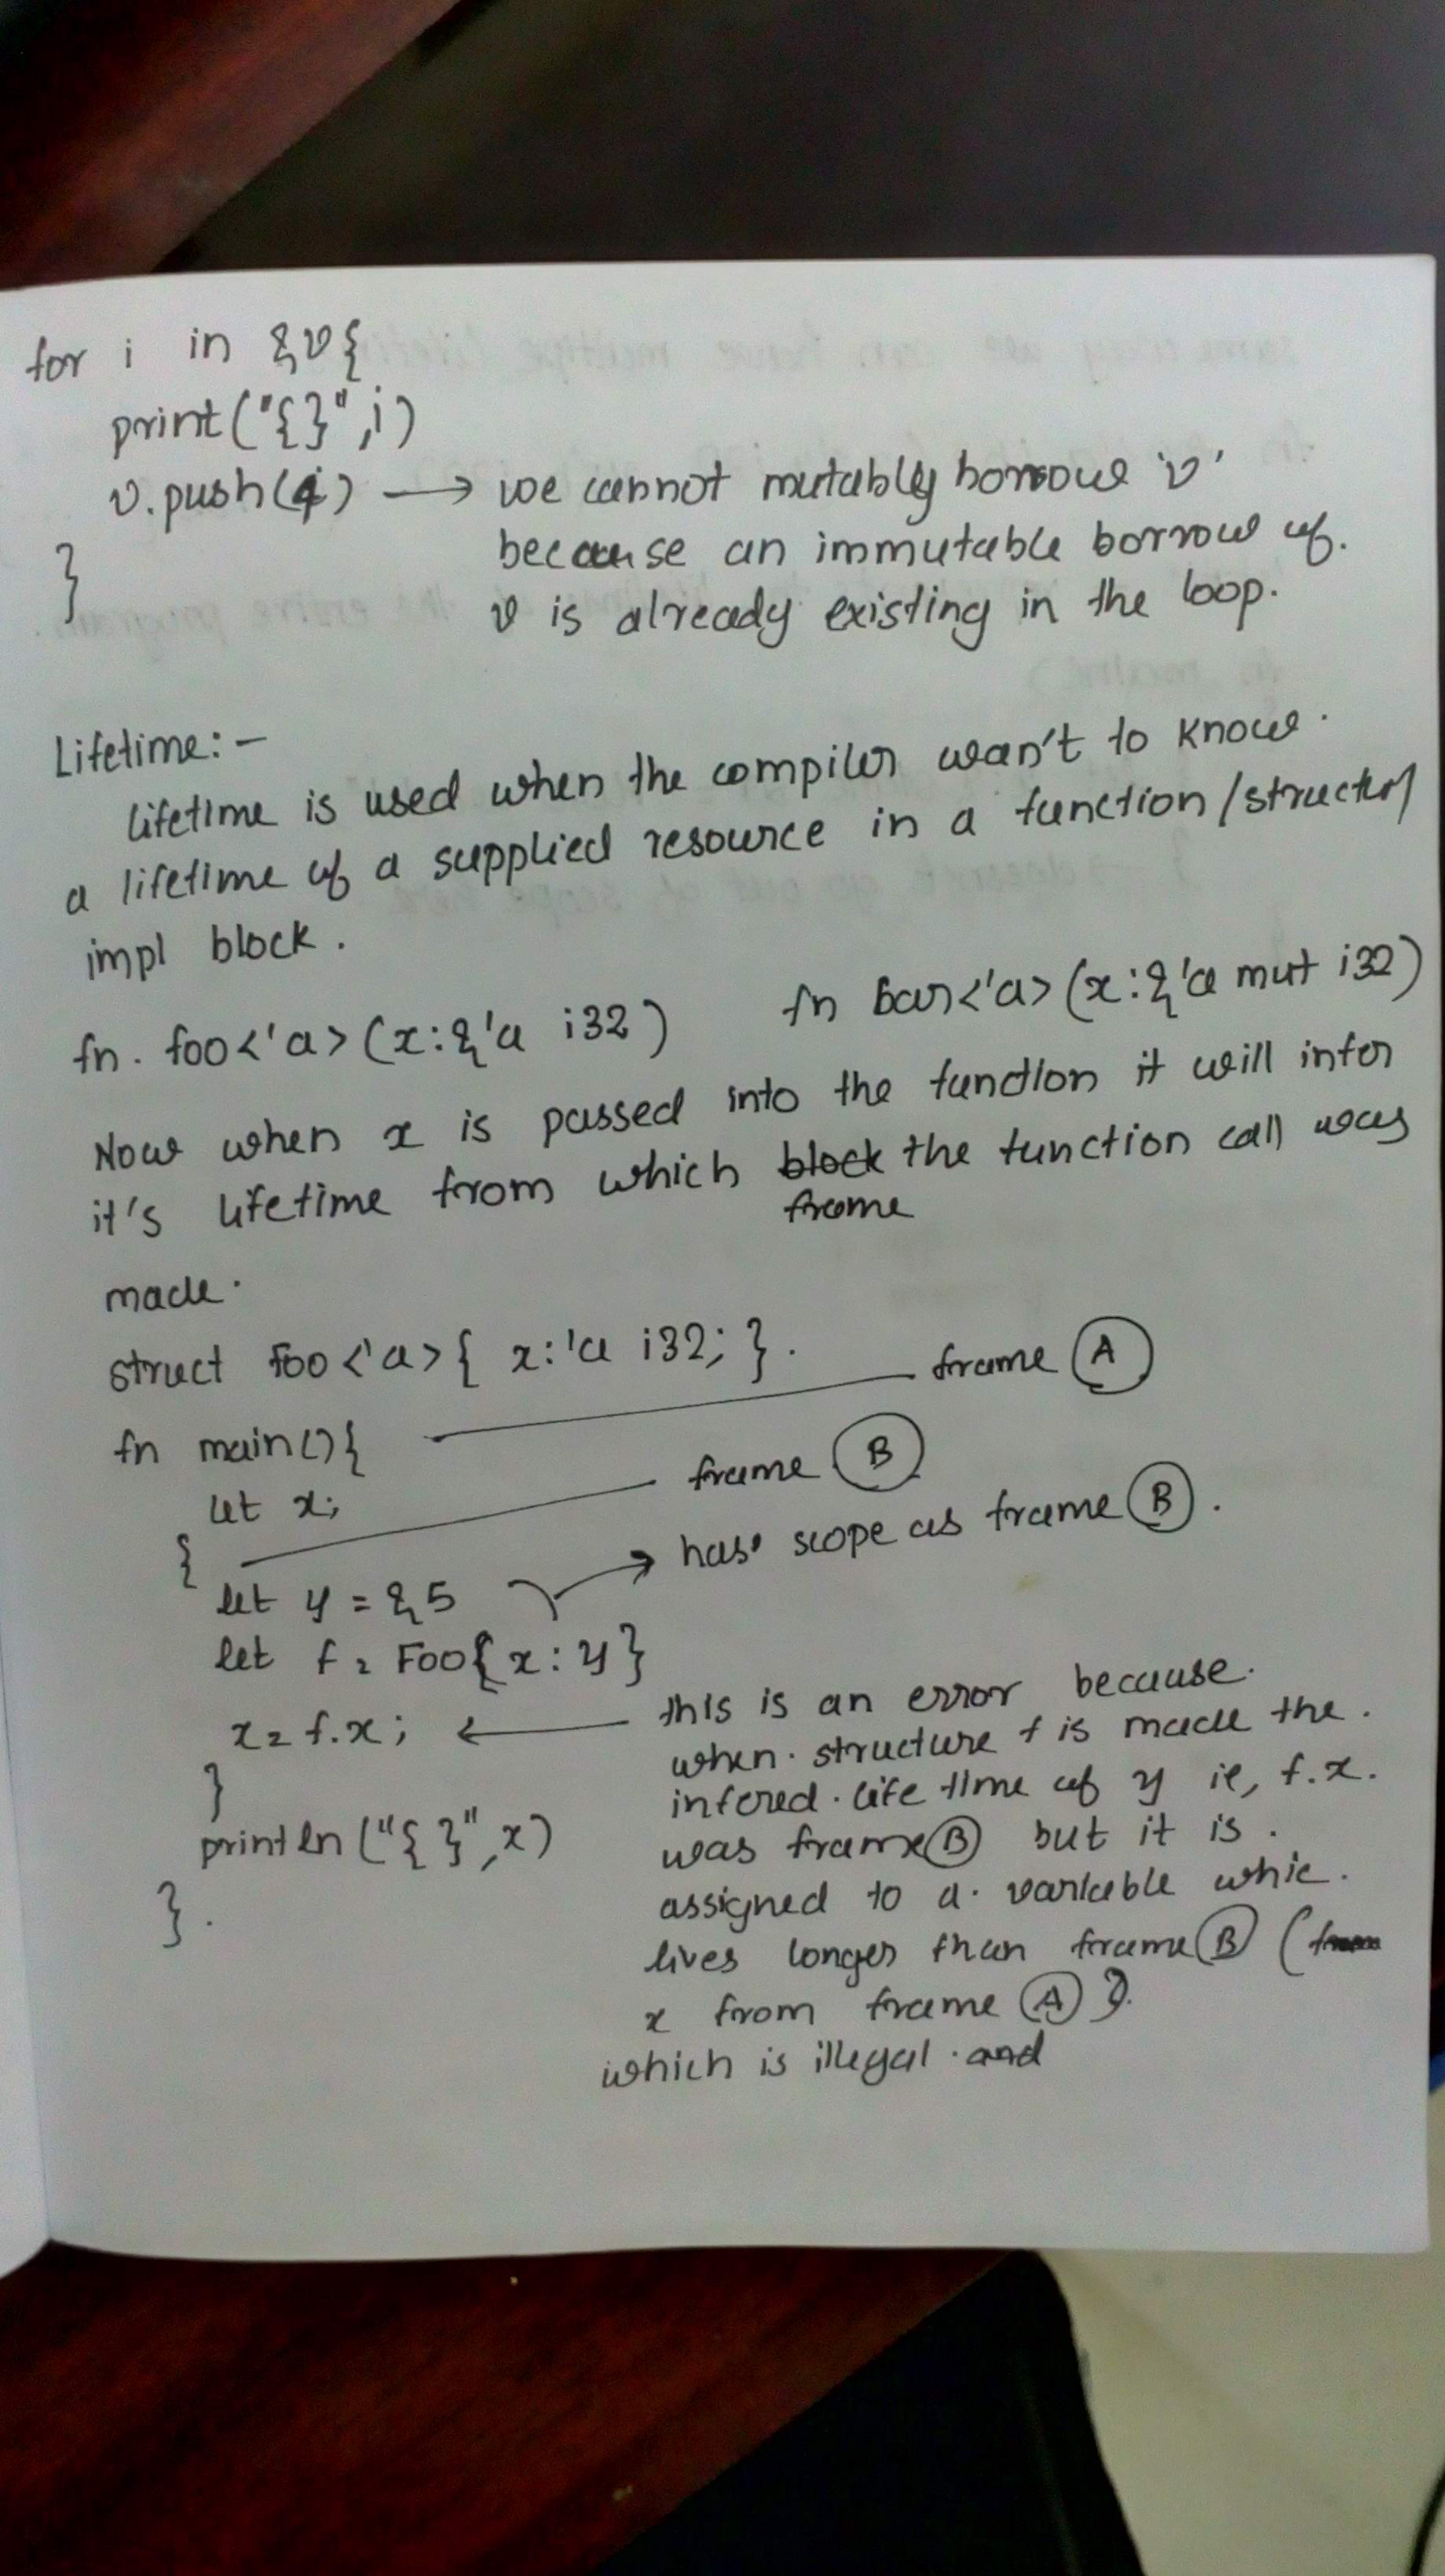 for i in &v{
print("{}",i)
v.push(4) → we cannot mutably borrow 'v'
because an immutable borrow of.
} v is already existing in the loop.
Lifetime:-
lifetime is used when the compiler wan't to know.
a lifetime of a supplied resource in a function/struct or
impl block.
fn. foo<'a>(x:&'a i32) fn bar<'a>(x:&'a mut i32)
Now when x is passed into the function it will infer
it's lifetime from which block the function call was
frame
made.
struct Foo<'a>{ x:'a i32; }.
frame A
fn main(){
frame B
let x;
{
has scope as frame B.
let y = &5
let f = Foo{x:y}
x = f.x; ← this is an error because.
when. structure f is made the.
} infered. life time of y ie, f.x.
println("{}",x) was frame B but it is.
assigned to a. variable whic.
}. lives longer than frame B (
x from frame A).
which is illegal. and